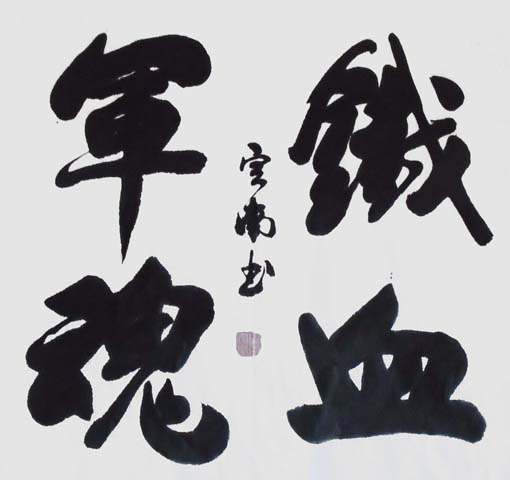 鐵血
軍魂
雲南书